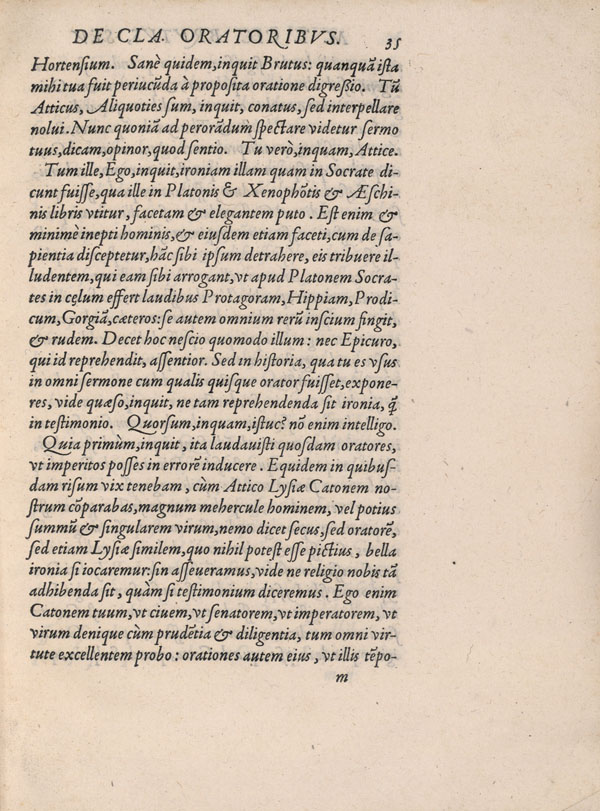 DE CLA. ORATORIBVS. 35
Hortenſium. Sanè quidem,inquit Brutus: quanquã iſta
mihi tua fuit periucũda à propoſita oratione digreßio. Tũ
Atticus, Aliquoties ſum, inquit, conatus, ſed interpellare
nolui. Nunc quoniã ad perorãdum ſpectare videtur ſermo
tuus,dicam,opinor,quod ſentio. Tu verò,inquam,Attice.
Tum ille, Ego,inquit,ironiam illam quam in Socrate di-
cunt fuiſſe,qua ille in Platonis & Xenophõtis & Æſchi-
nis libris vtitur, facetam & elegantem puto. Eſt enim &
minimè inepti hominis,& eiuſdem etiam faceti,cum de ſa-
pientia diſceptetur,hãc ſibi ipſum detrahere, eis tribuere il-
ludentem, qui eam ſibi arrogant,vt apud Platonem Socra-
tes in cęlum effert laudibus Protagoram,Hippiam,Prodi-
cum,Gorgiã,cæteros:ſe autem omnium rerũ inſcium fingit,
& rudem. Decet hoc neſcio quomodo illum: nec Epicuro,
qui id reprehendit, aſſentior. Sed in hiſtoria, qua tu es vſus
in omni ſermone cum qualis quiſque orator fuiſſet,expone-
res, vide quæſo,inquit, ne tam reprehendenda ſit ironia, q̃
in teſtimonio. Quorſum,inquam,iſtuc? nõ enim intelligo.
Quia primùm,inquit, ita laudauiſti quoſdam oratores,
vt imperitos poſſes in errorẽ inducere. Equidem in quibuſ-
dam riſum vix tenebam, cùm Attico Lyſiæ Catonem no-
ſtrum cõparabas,magnum mehercule hominem, vel potius
ſummũ & ſingularem virum,nemo dicet ſecus,ſed oratorẽ,
ſed etiam Lyſiæ ſimilem,quo nihil poteſt eſſe pictius, bella
ironia ſi iocaremur:ſin aſſeueramus,vide ne religio nobis tã
adhibenda ſit, quàm ſi teſtimonium diceremus. Ego enim
Catonem tuum,vt ciuem,vt ſenatorem,vt imperatorem, vt
virum denique cùm prudẽtia & diligentia, tum omni vir-
tute excellentem probo: orationes autem eius, vt illis tẽpo-
m